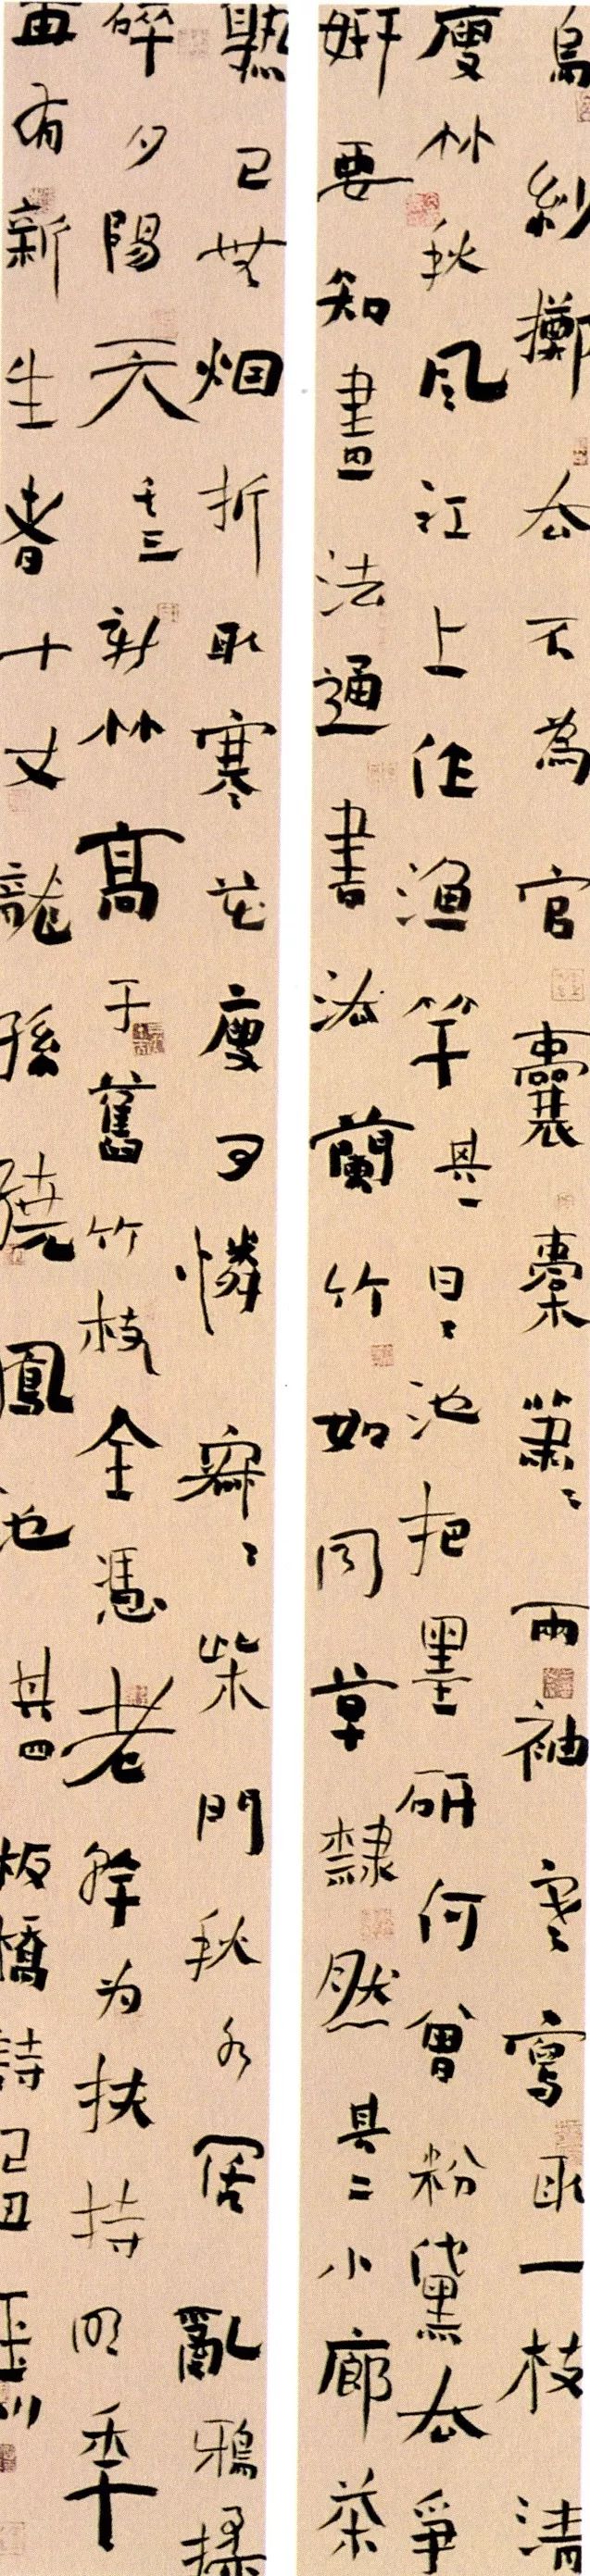 烏紗擲去不為官囊橐蕭〻兩袖寒寫取一枝清
瘦竹秋風江上作漁竿其一日〻池把墨研何曾粉黛去爭
妍要知畫法通書法蘭竹如同草隸然其二小廊茶
熟已無烟折取寒花瘦可憐寂〻柴門秋水闊亂鴉揉
碎夕陽天其三新竹高于舊竹枝全憑老幹為扶持明年
再有新生者十丈龍孫繞鳳池其四板橋詩己丑